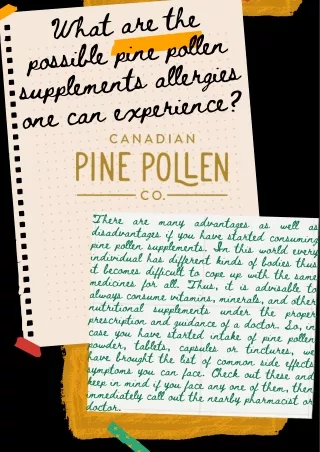 What are the
possible pine pollen
supplements allergies
one can experience?
CANADIAN
PINE POLLEN
CO.
There are many advantages as well as
disadvantages if you have started consuming
pine pollen supplements. In this world every
individual has different kinds of bodies thus
it becomes difficult to cope up with the same
medicines for all. Thus, it is advisable to
always consume vitamins, minerals, and other
nutritional supplements under the proper
prescription and guidance of a doctor. So, in
case you have started intake of pine pollen
powder, tablets, capsules or tinctures, we
have brought the list of common side effects
symptoms you can face. Check out these and
keep in mind if you face any one of them, then
immediately call out the nearby pharmacist or
doctor.